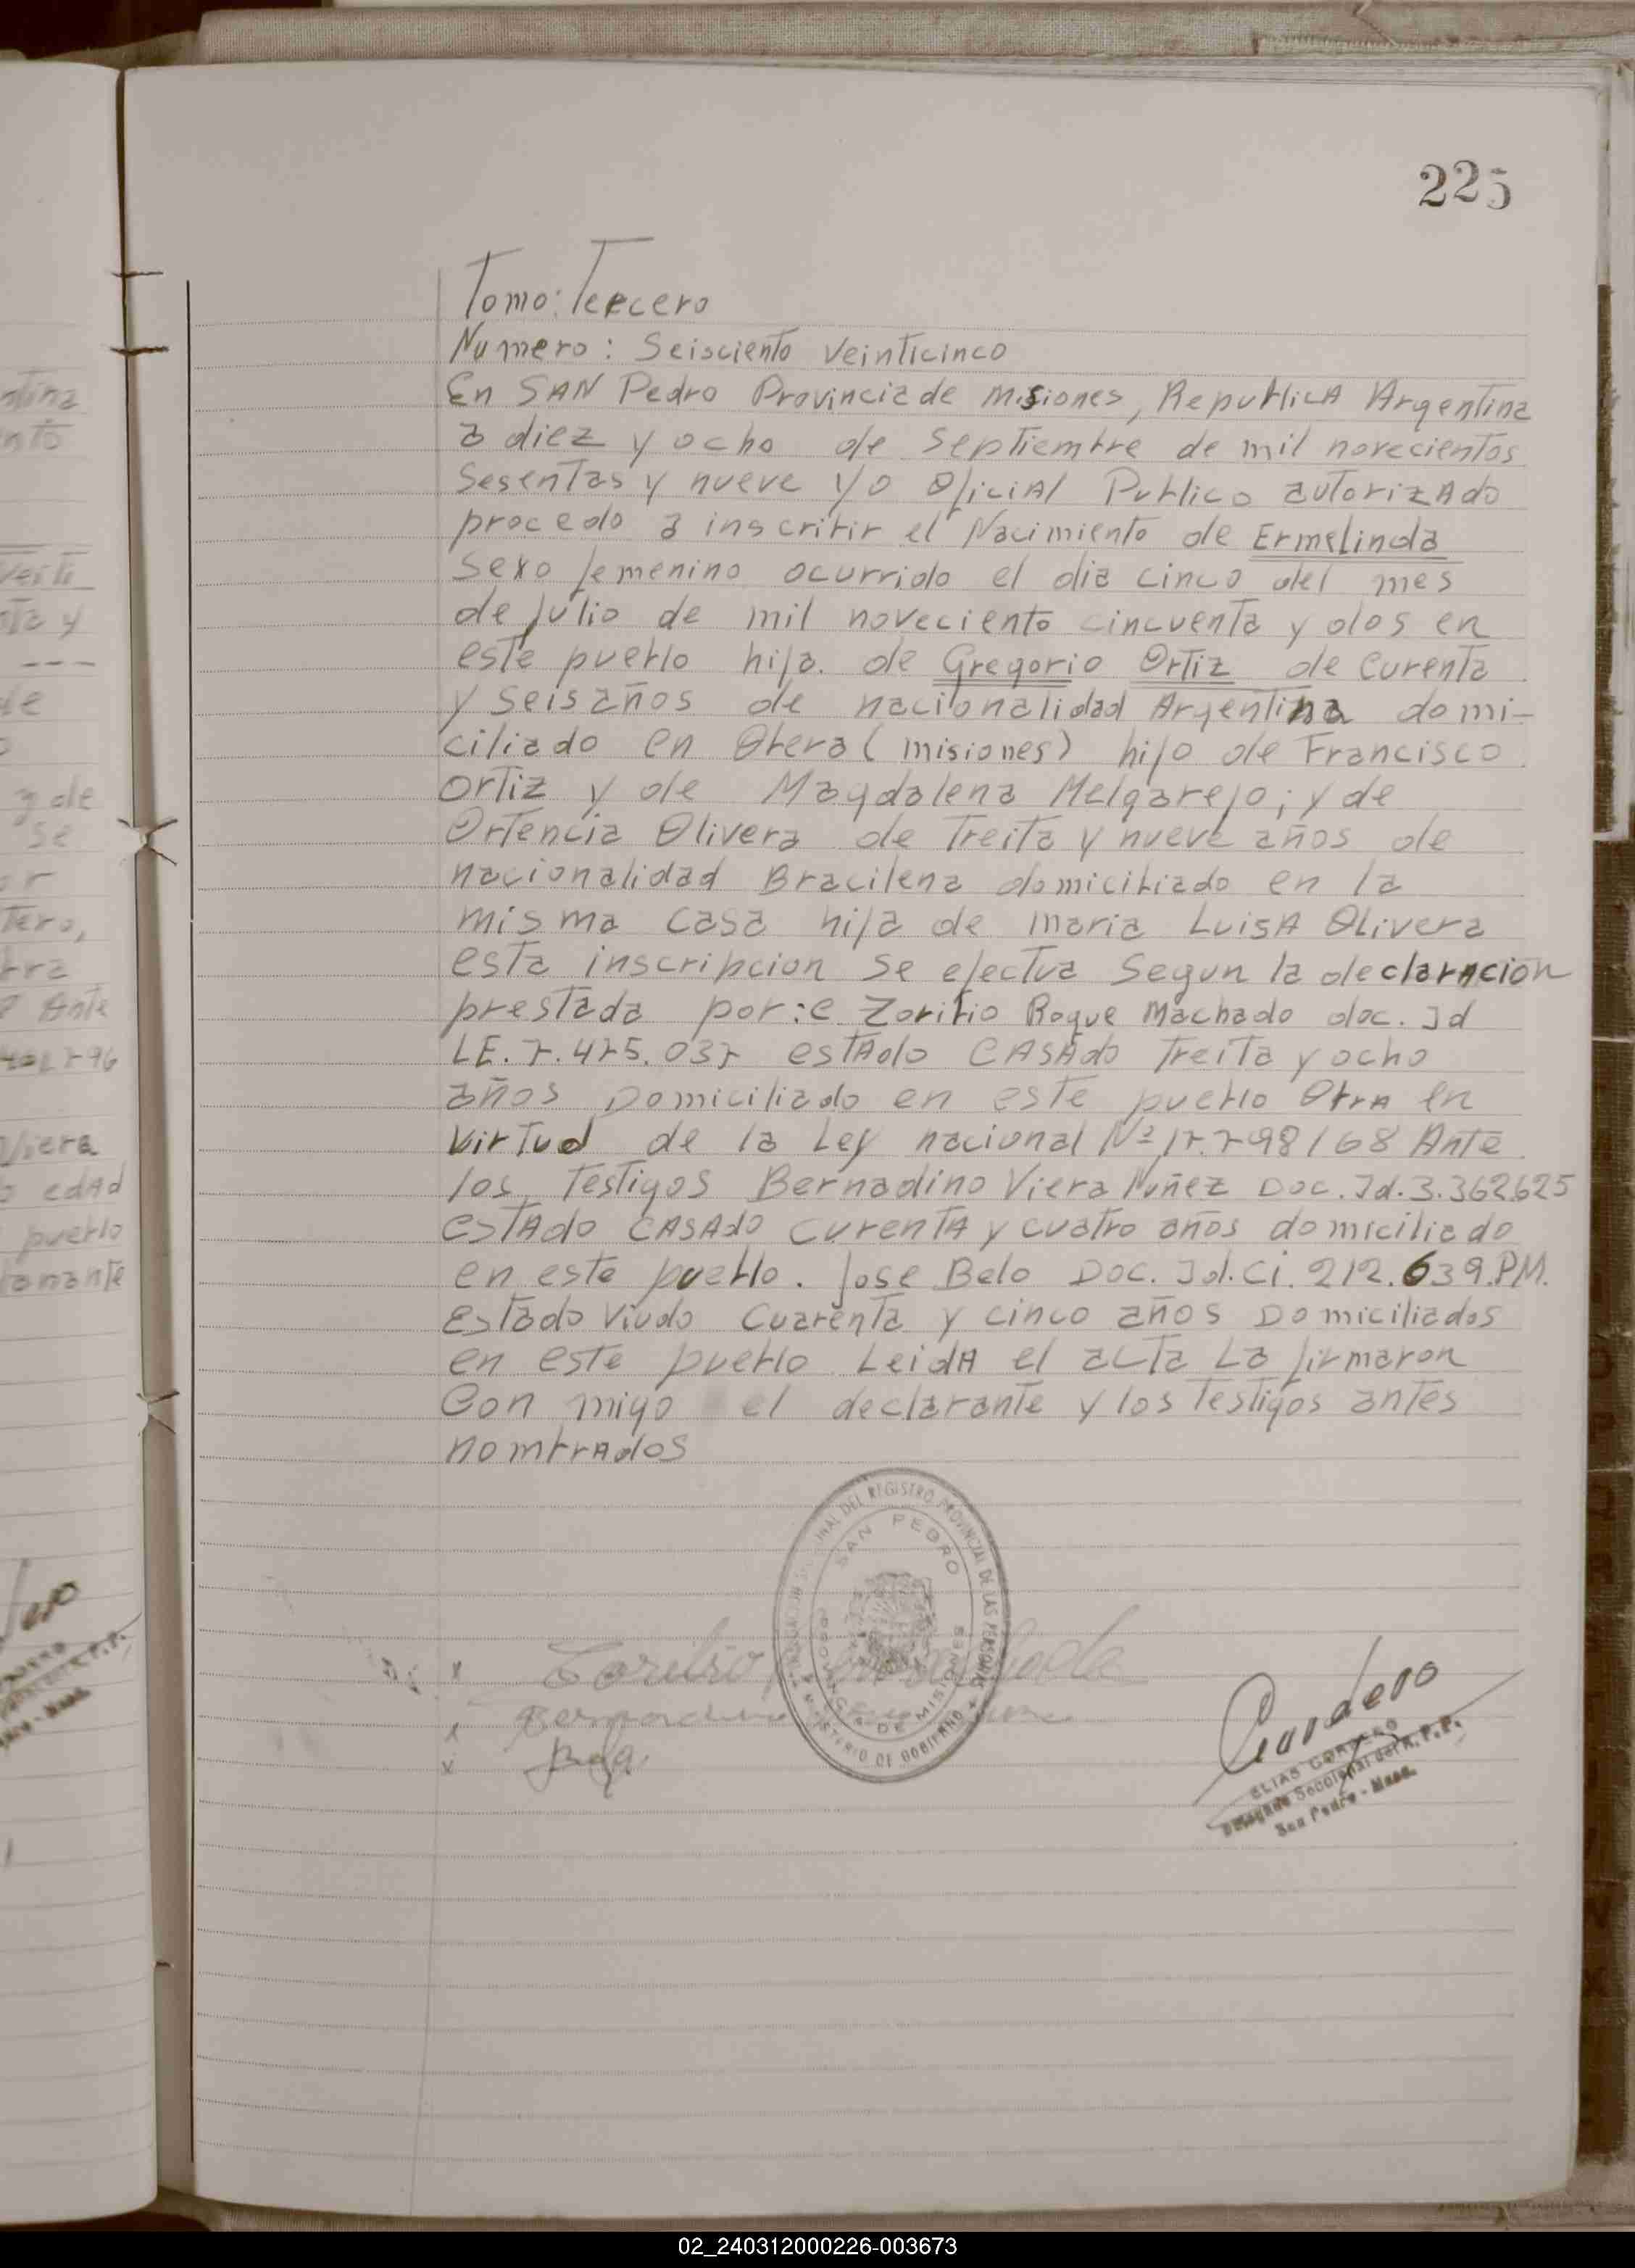 225
Tomo: Tercero
Numero: Seisciento veinticinco
En SAN Pedro Provincia de Misiones, Republica Argentina
a diez y ocho de Septiembre de mil novecientos
Sesentas y nueve yo Oficial Publico autorizado
procedo a inscribir el Nacimiento de Ermelinda
Sexo femenino ocurrido el dia cinco del mes
de Julio de mil noveciento cincuenta y dos en
este pueblo hija. de Gregorio Ortiz de Curenta
y seis años de nacionalidad Argentina domi-
ciliado en Obera (misiones) hijo de Francisco
Ortiz y de Magdalena Melgarejo; y de
Ortencia Olivera de Treita y nueve años de
nacionalidad Bracilena domiciliado en la
misma casa hija de maria Luisa Olivera
esta inscripcion se efectua Segun la declaracion
prestada por: Zoribio Roque Machado doc. Id
LE. 7.475.037 estado casado Treita y ocho
años Domiciliado en este pueblo Obra en
virtud de la Ley nacional Nº 17.798/68 Ante
los Testigos Bernadino Viera Nuñez Doc. Id. 3.362625
estado casado curenta y cuatro años domiciliado
en este pueblo. Jose Belo Doc. Id. Ci. 212.639.PM.
Estado Viudo Cuarenta y cinco años Domiciliados
en este pueblo Leida el acta La firmaron
Con migo el declarante y los Testigos antes
nombrados
SAN PEDRO
DEL REGISTRO PROVINCIAL DE LAS PERSONAS
DE MISIONES
MINISTERIO DE GOBIERNO
Toribio
Cordero
ELIAS CORDERO
Delegado Seccional del R.P.P.
San Pedro - Mnes.
02_240312000226-003673